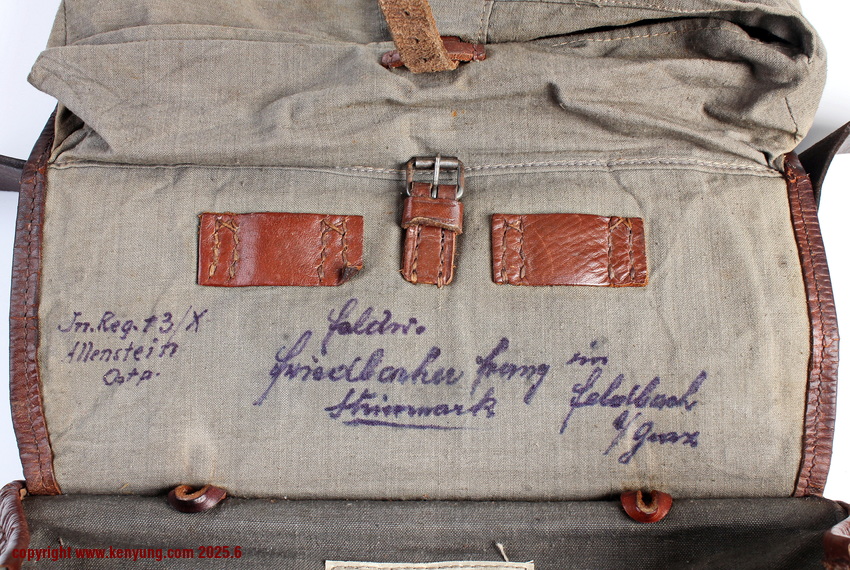 In. Reg. 43/X
Allenstein
Ostp.
Feldw.
Friedbacher Franz in
Steiermark
Feldbach
b/Graz
copyright www.kenyung.com 2025.6